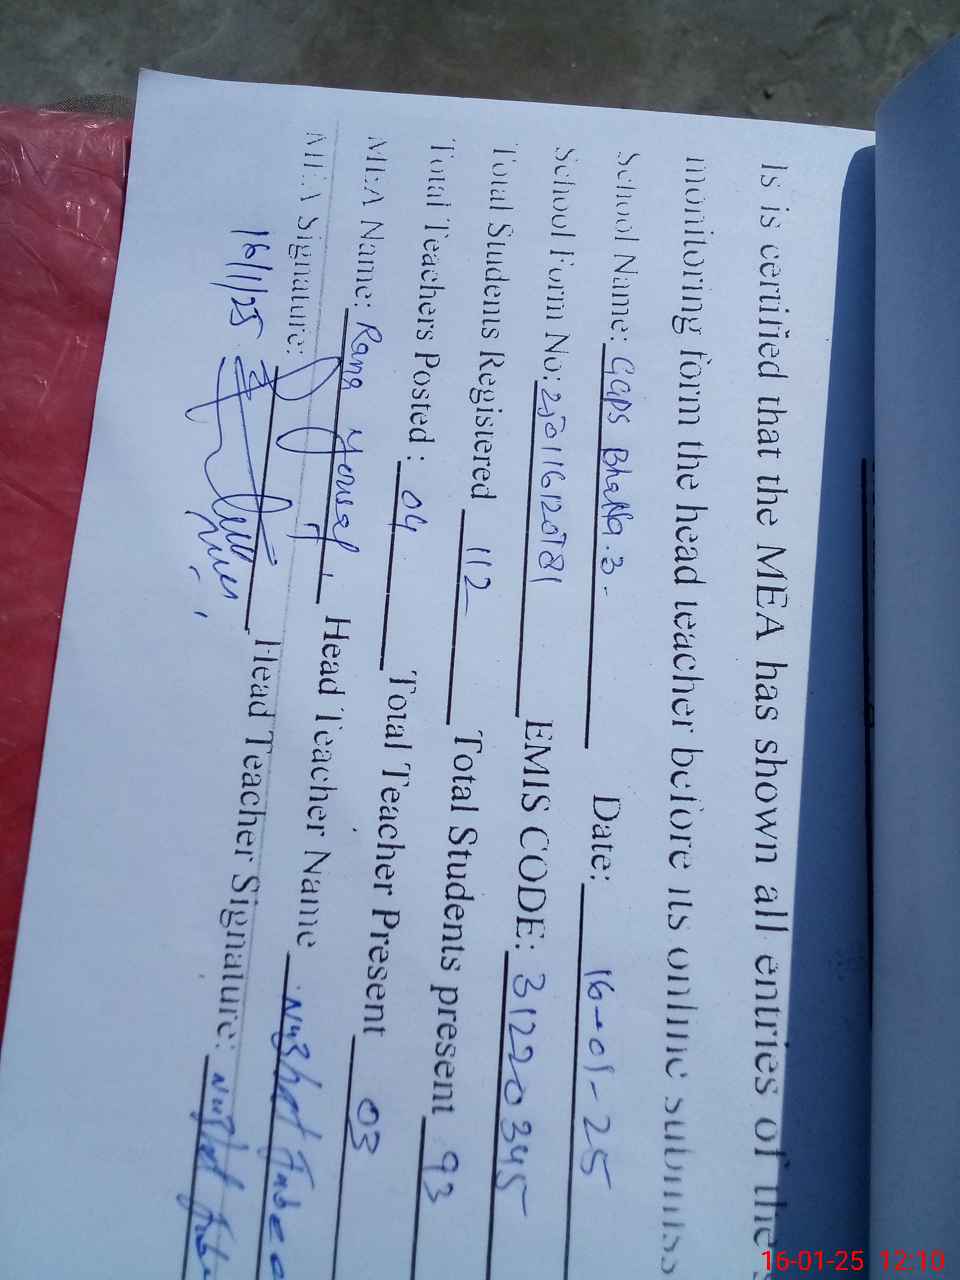 Is is certified that the MEA has shown all entries of the
monitoring form the head teacher before its online submiss
School Name: GGPS Bhatta.3. Date: 16-01-25
School Form No: 250116120781 EMIS CODE: 31220345
Total Students Registered 112 Total Students present 93
Total Teachers Posted : 04 Total Teacher Present 03
MEA Name: Rana Yousaf Head Teacher Name Nuzhat Jabee
MEA Signature: Head Teacher Signature: Nuzhat
16/1/25
16-01-25 12:10